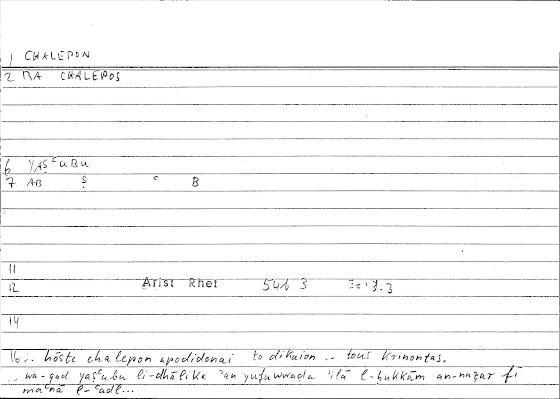 1 CHALEPON
2 RA CHALEPOS
6 YAṢʿUBU
7 AB Ṣ ʿ B
11
12 Arist Rhet 54b 3 3.3
14
16 .. hōste chalepon apodidonai to dikaion .. tous krinontas.
.. wa-qad yaṣʿubu li-dhālika ʾan yufuwwaḍa ʾilā l-ḥukkām an-naẓar fī
maʿnā l-ʿadl...